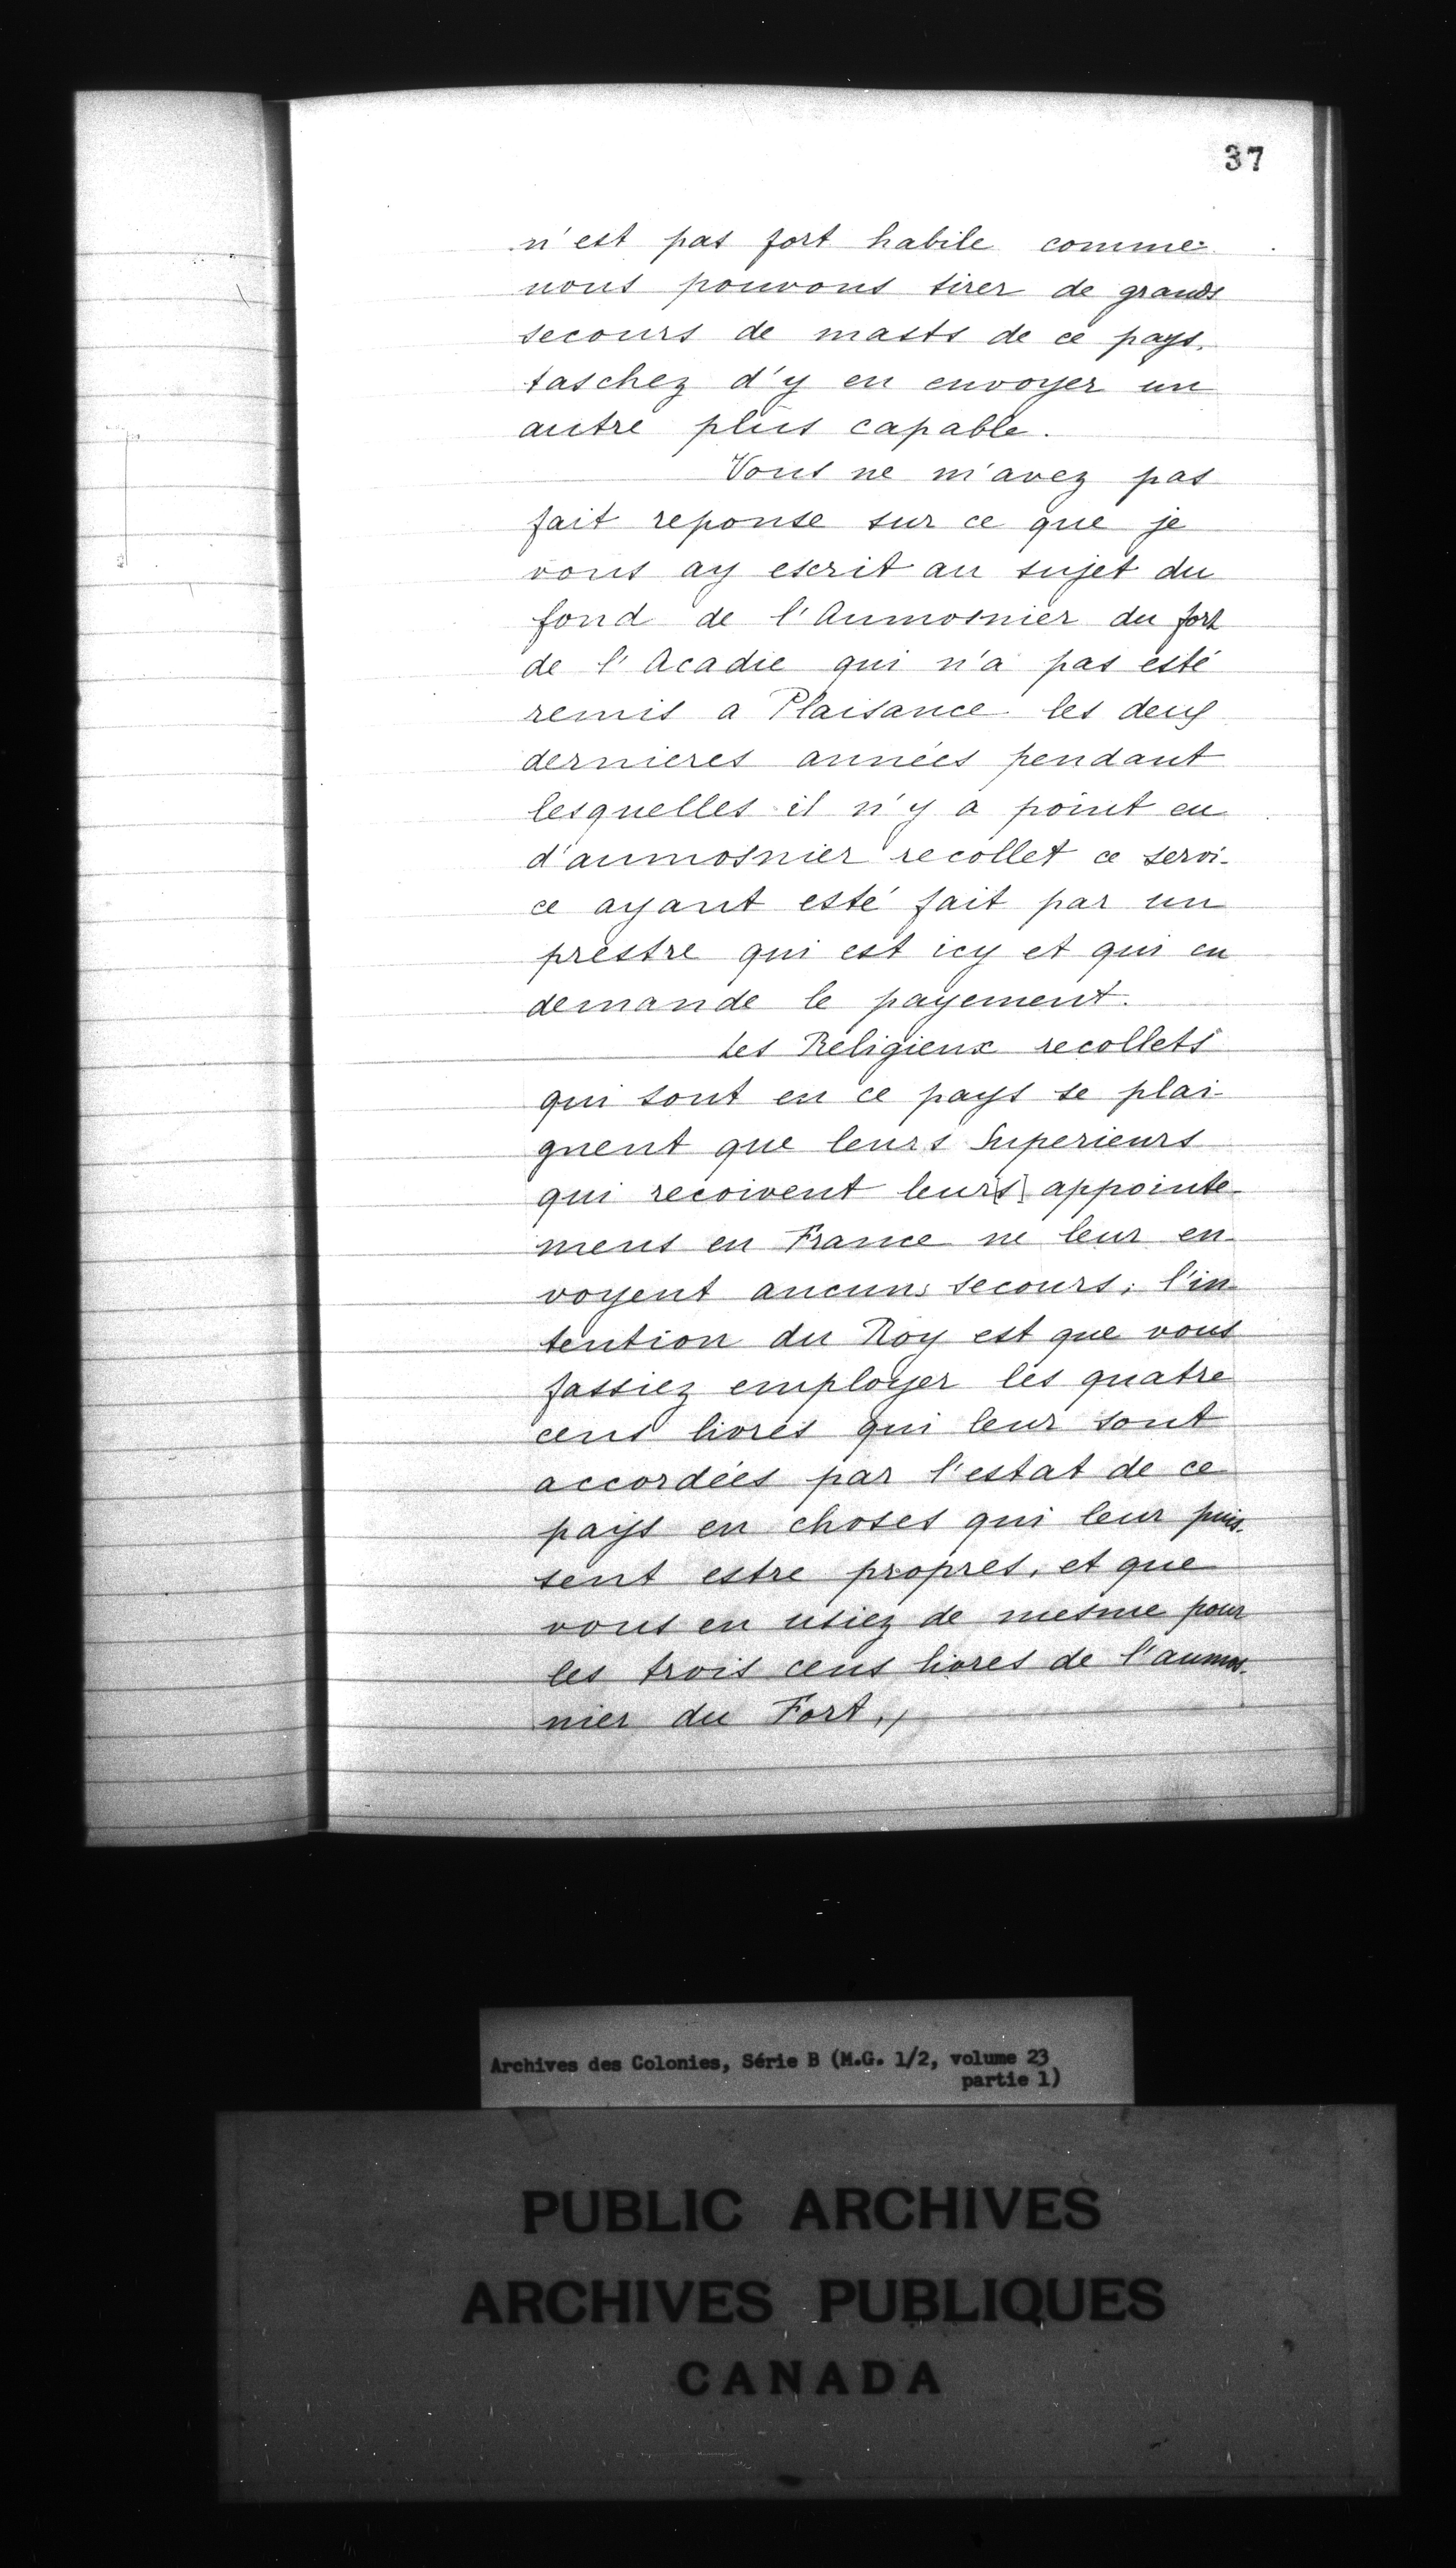 37
n'est pas fort habile comme
nous pouvons tirer de grands
secours de masts de ce pays.
taschez d'y en envoyer un
autre plus capable.
Vous ne m'avez pas
fait reponse sur ce que je
vous ay escrit au sujet du
fond de l'Aumosnier du fort
de l'Acadie qui n'a pas esté
remis a Plaisance les deux
dernieres années pendant
lesquelles il n'y a point eu
d'aumosnier recollet ce servi-
ce ayant esté fait par un
prestre qui est icy et qui en
demande le payement.
Les Religieux recollets
qui sont en ce pays se plai-
gnent que leurs Superieurs
qui recoivent leur[s] appointe-
mens en France ne leur en-
voyent aucuns secours; l'in
tention du Roy est que vous
fassiez employer les quatre
cens livres qui leur sont
accordées par l'estat de ce
pays en choses qui leur puis-
sent estre propres, et que
vous en usiez de mesme pour
les trois cens livres de l'aumos-
nier du Fort./
Archives des Colonies, Série B (M.G. 1/2, volume 23
partie 1)
PUBLIC ARCHIVES
ARCHIVES PUBLIQUES
CANADA